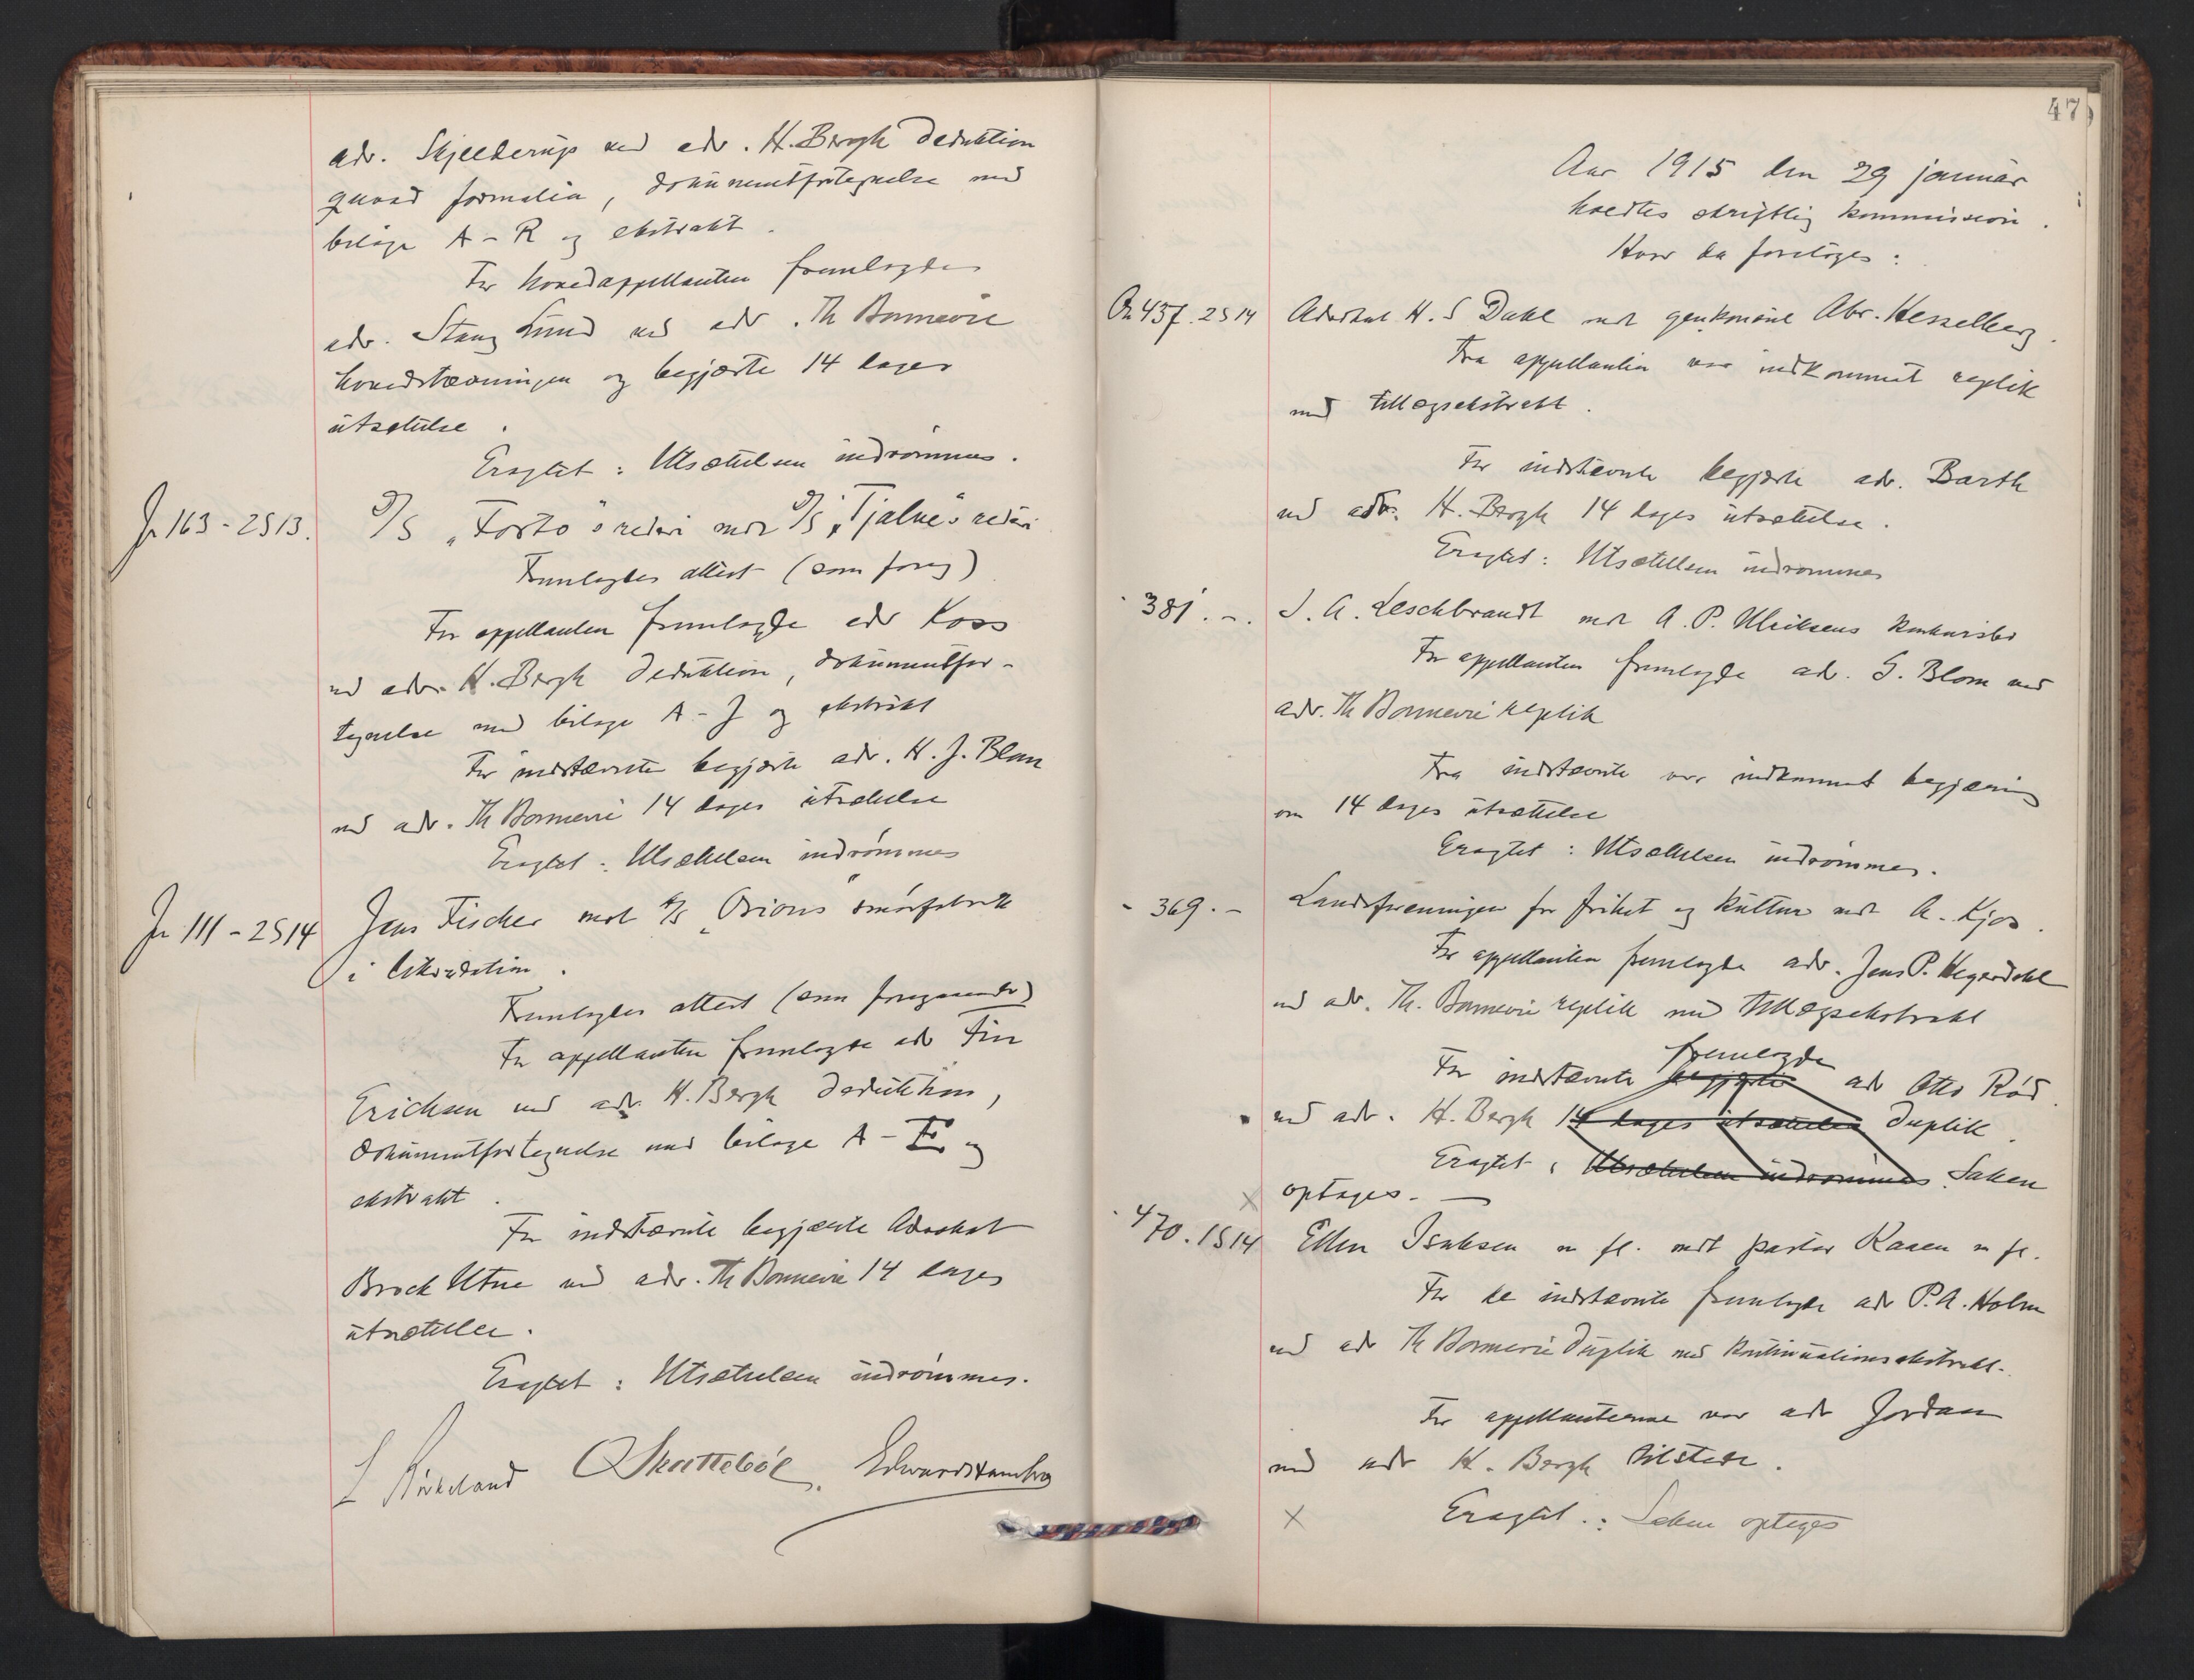 adv. Skjelderup ved adv. H. Bergh deduktion
quoad formalia, dokumentfortegnelse med
bilage A-R og ekstrakt.
For hovedappellanten fremlagde
adv. Stang Lund ved adv. Th Bonnevie
hovedstævningen og begjærte 14 dages
utsættelse.
Eragtet: Utsættelsen indrømmes.
Jr 163-2S13. D/S „Forto"s rederi mot D/S „Tjalve"s rederi
Fremlagdes attest (som foreg)
For appellanten fremlagde adv Koss
ved adv. H. Bergh deduktion, dokumentfor-
tegnelse med bilage A-J og ekstrakt
For indstævnte begjærte adv. H. J. Blom
ved adv. Th Bonnevie 14 dages utsættelse
Eragtet: Utsættelsen indrømmes
Jr 111-2S14 Jens Fischer mot A/S „Orions" smørfabrik
i likvidation.
Fremlagdes attest (som foregaaende)
For appellanten fremlagde adv Finn
Ericksen ved adv. H. Bergh deduktion,
dokumentfortegnelse med bilage A-F og
ekstrakt.
For indstævnte begjærte Advokat
Brock Utne ved adv. Th Bonnevie 14 dages
utsættelse.
Eragtet: Utsættelsen indrømmes.
L Birkeland Skattebøl. Edward Hambro
47
Aar 1915 den 29 januar
holdtes skriftlig kommission.
Hvor da foretoges:
437. 2S14 Advokat H. S Dahl mot grukonsul Abr. Hesselberg.
Fra appellanten var indkommet replik
med tillægsekstrakt.
For indstævnte begjærte adv. Barth
ved adv. H. Bergh 14 dages utsættelse.
Eragtet: Utsættelsen indrømmes
381. -. J. A. Leschbrandt mot A. P. Ulriksens konkursbo
For appellanten fremlagde adv. G. Blom ved
adv. Th Bonnevie replik
Fra indstævnte var indkommet begjæring
om 14 dages utsættelse
Eragtet: Utsættelsen indrømmes.
- 369. - Landsforeningen for frihet og kultur mot A. Kjos.
For appellanten fremlagde adv. Jens P. Hegerdahl
ved adv. Th. Bonnevie replik med tillægsekstrakt
For indstævnte begjærte fremlagde adv Otto Rød
ved adv. H. Bergh 14 dages utsættelse duplik.
Eragtet: Utsættelsen indrømmes Saken
optages. -
470. 1S14 Ellen Isaksen m fl. mot pastor Kaaen m fl.
For de indstævnte fremlagde adv P. A. Holm
ved adv Th Bonnevie duplik med kontinuationsekstrakt.
For appellanterne var adv Jordan
ved adv H. Bergh tilstede.
Eragtet: Saken optages